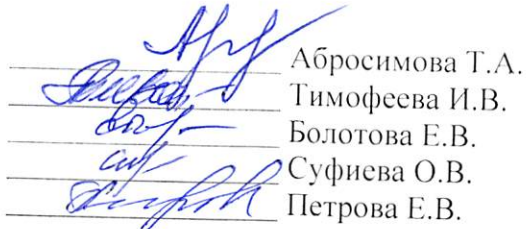 Абросимова Т.А.
Тимофеева И.В.
Болотова Е.В.
Суфиева О.В.
Петрова Е.В.